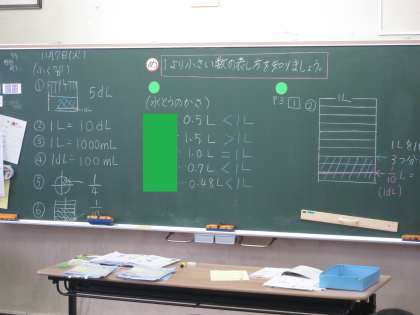 11月7日(火)
め 1より小さい数の表し方を知りましょう。
(ふくしゅう)
① 5dL
② 1L=10dL
③ 1L=1000mL
④ 1dL=100mL
⑤ 1/4
⑥
(水とうのかさ)
0.5L<1L
1.5L>1L
1.0L=1L
0.7L<1L
0.48L<1L
P3 1 ②
1L
1Lを
3つ分
1/10L=
(1dL)